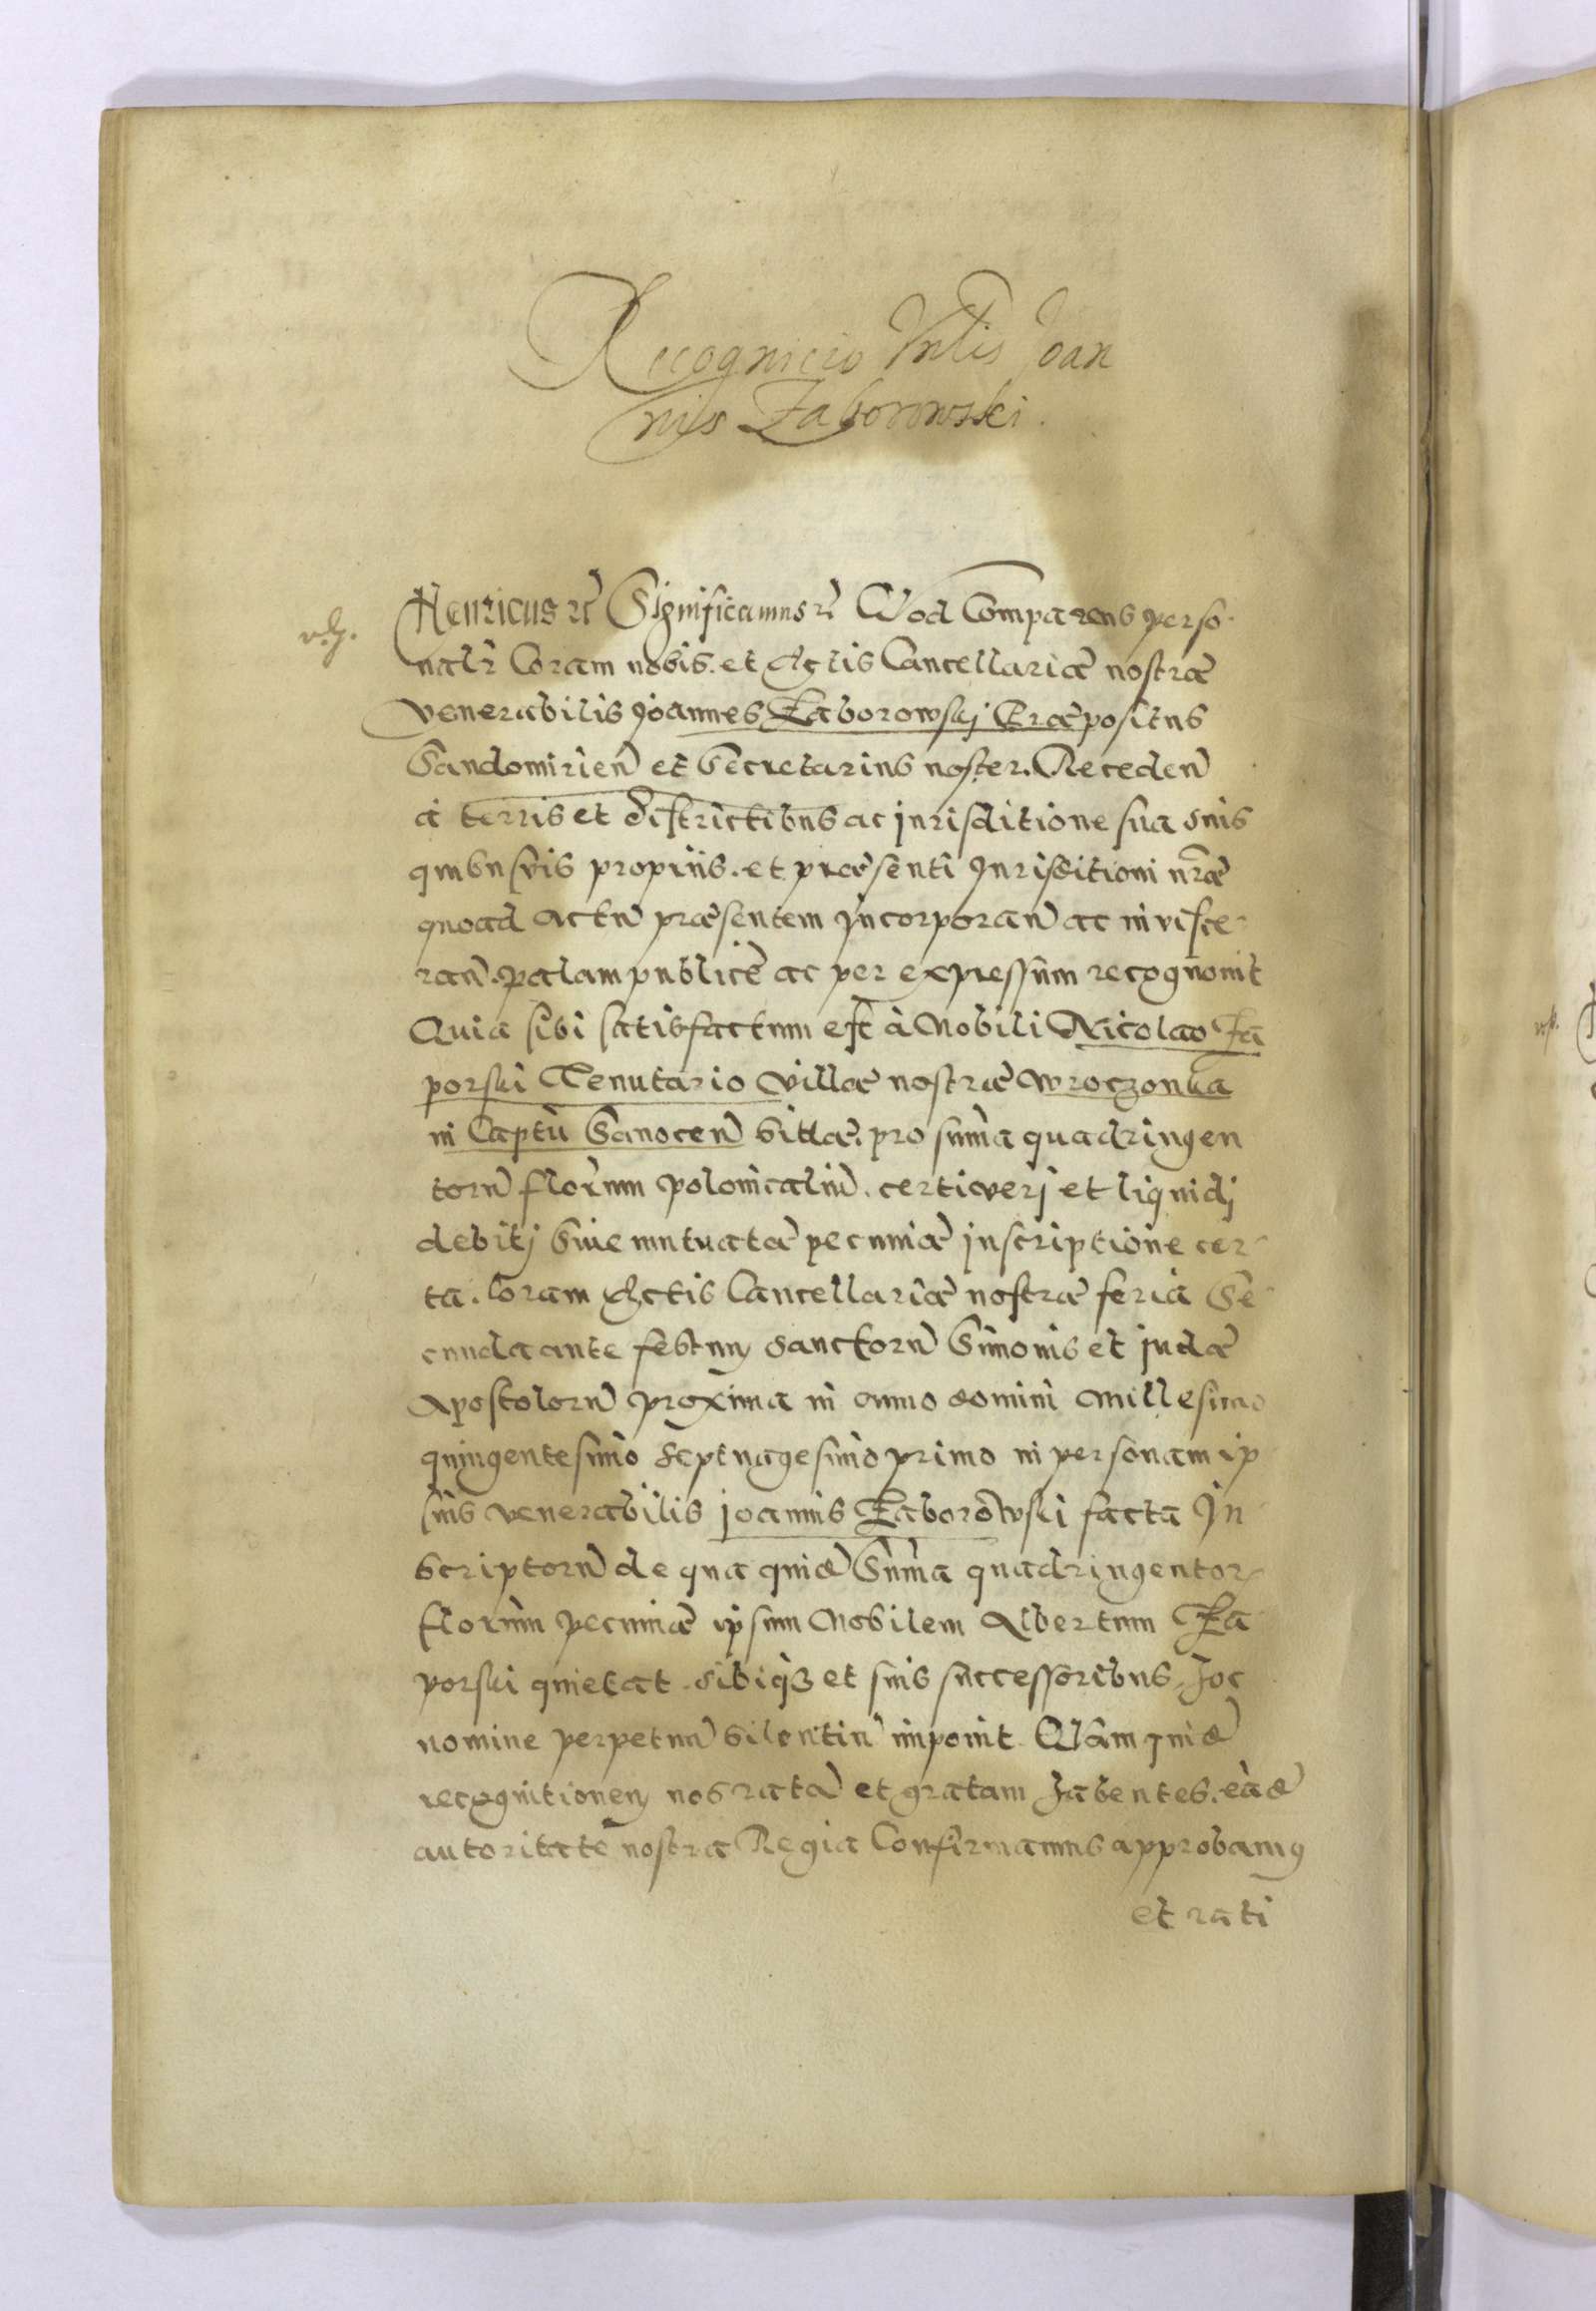 Recognicio Vnlis Joan
nis Zaborowski.
Henricus rc Significamus rc Quod Comparens perso
nalr Coram nobis. et Actis Cancellariæ nostræ
Venerabilis Joannes Zaborowskj Præpositus
Sandomirien et Secretarius noster. Receden
à terris et districtibus ac jurisditione sua suis
quibusvis proprijs. et præsenti Jurisditioni nræ
quoad actu præsentem Incorporan ac invisce
ran. palam publicè ac per expressum recognouit
Quia sibi satisfactum est à Nobili Nicolao Za
porski Tenutario Villæ nostræ Wroczonka
in Captu Sanocen sitæ. pro suma quadringen
toru florenum polonicaliu. certi verj et liquidj
debitj Siue mutuatæ pecuniæ inscriptione cer
ta. Coram Actis Cancellariæ nostræ feria Se
cunda ante festum sanctoru Simonis et judæ
Apostoloru proxima in anno domini Millesimo
quingentesimo septuagesimo primo in personam ip
sius venerabilis joannis Zaborowski facta In
scriptoru de qua quid Suma quadringentor
florenum pecuniæ ipsum Nobilem Albertum Za
porski quietat. sibiq3 et suis successoribus hoc
nomine perpetuu silentiu imponit. Qlam quid
recognitionem nos ratã et gratam habentes. eãd
autoritate nostra Regia Confirmamus approbamus
et rati